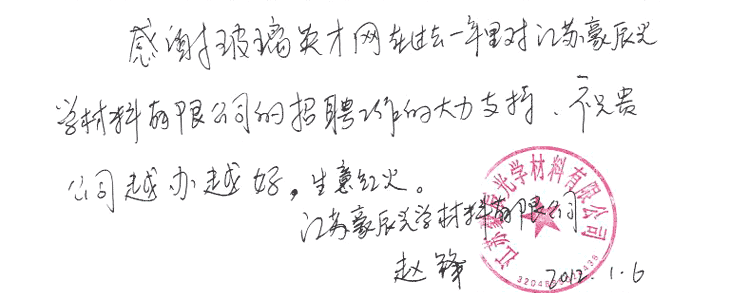 感谢玻璃英才网在过去一年里对江苏豪辰光
学材料有限公司的招聘工作的大力支持、祝贵
公司越办越好，生意红火。
江苏豪辰光学材料有限公司
江苏豪辰光学材料有限公司
赵锋 2012.1.6